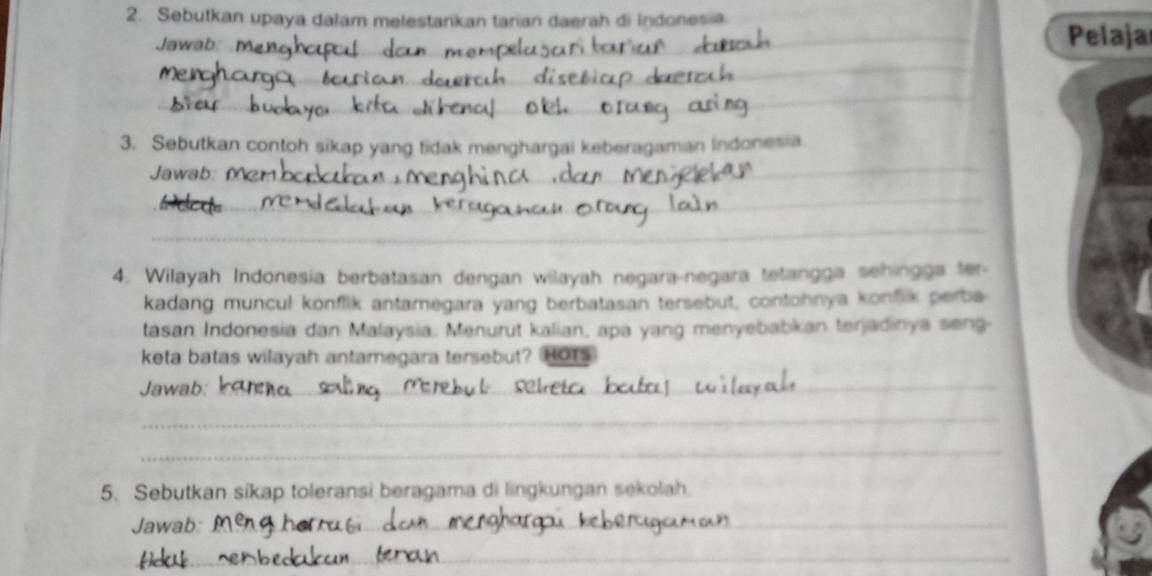 2. Sebutkan upaya dalam melestarikan tarian daerah di Indonesia.
Pelaja
Jawab: Menghapal dan mempelajari tarian daerah
Mengharga tarian daerah disetiap daerah
biar budaya kita dikenal oleh orang asing
3. Sebutkan contoh sikap yang tidak menghargai keberagaman Indonesia.
Jawab: Membedakan, menghina, dan menjelekan
membedakan keragaman orang lain
4. Wilayah Indonesia berbatasan dengan wilayah negara-negara tetangga sehingga ter-
kadang muncul konflik antarnegara yang berbatasan tersebut, contohnya konflik perba-
tasan Indonesia dan Malaysia. Menurut kalian, apa yang menyebabkan terjadinya seng-
keta batas wilayah antarnegara tersebut? HOTS
Jawab: karena saling merebut batas wilayah
5. Sebutkan sikap toleransi beragama di lingkungan sekolah.
Jawab: dan menghargai keberagaman
tidak membedakan teman